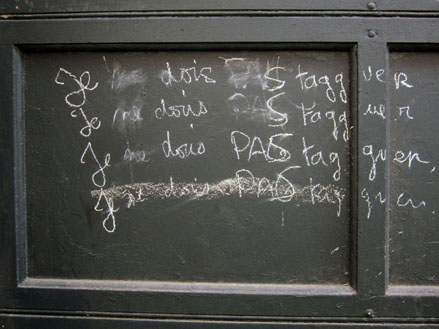 Je ne dois PAS tagguER
Je ne dois PAS tagguer
Je ne dois PAS tagguer.
Je ne dois PAS tagguer.